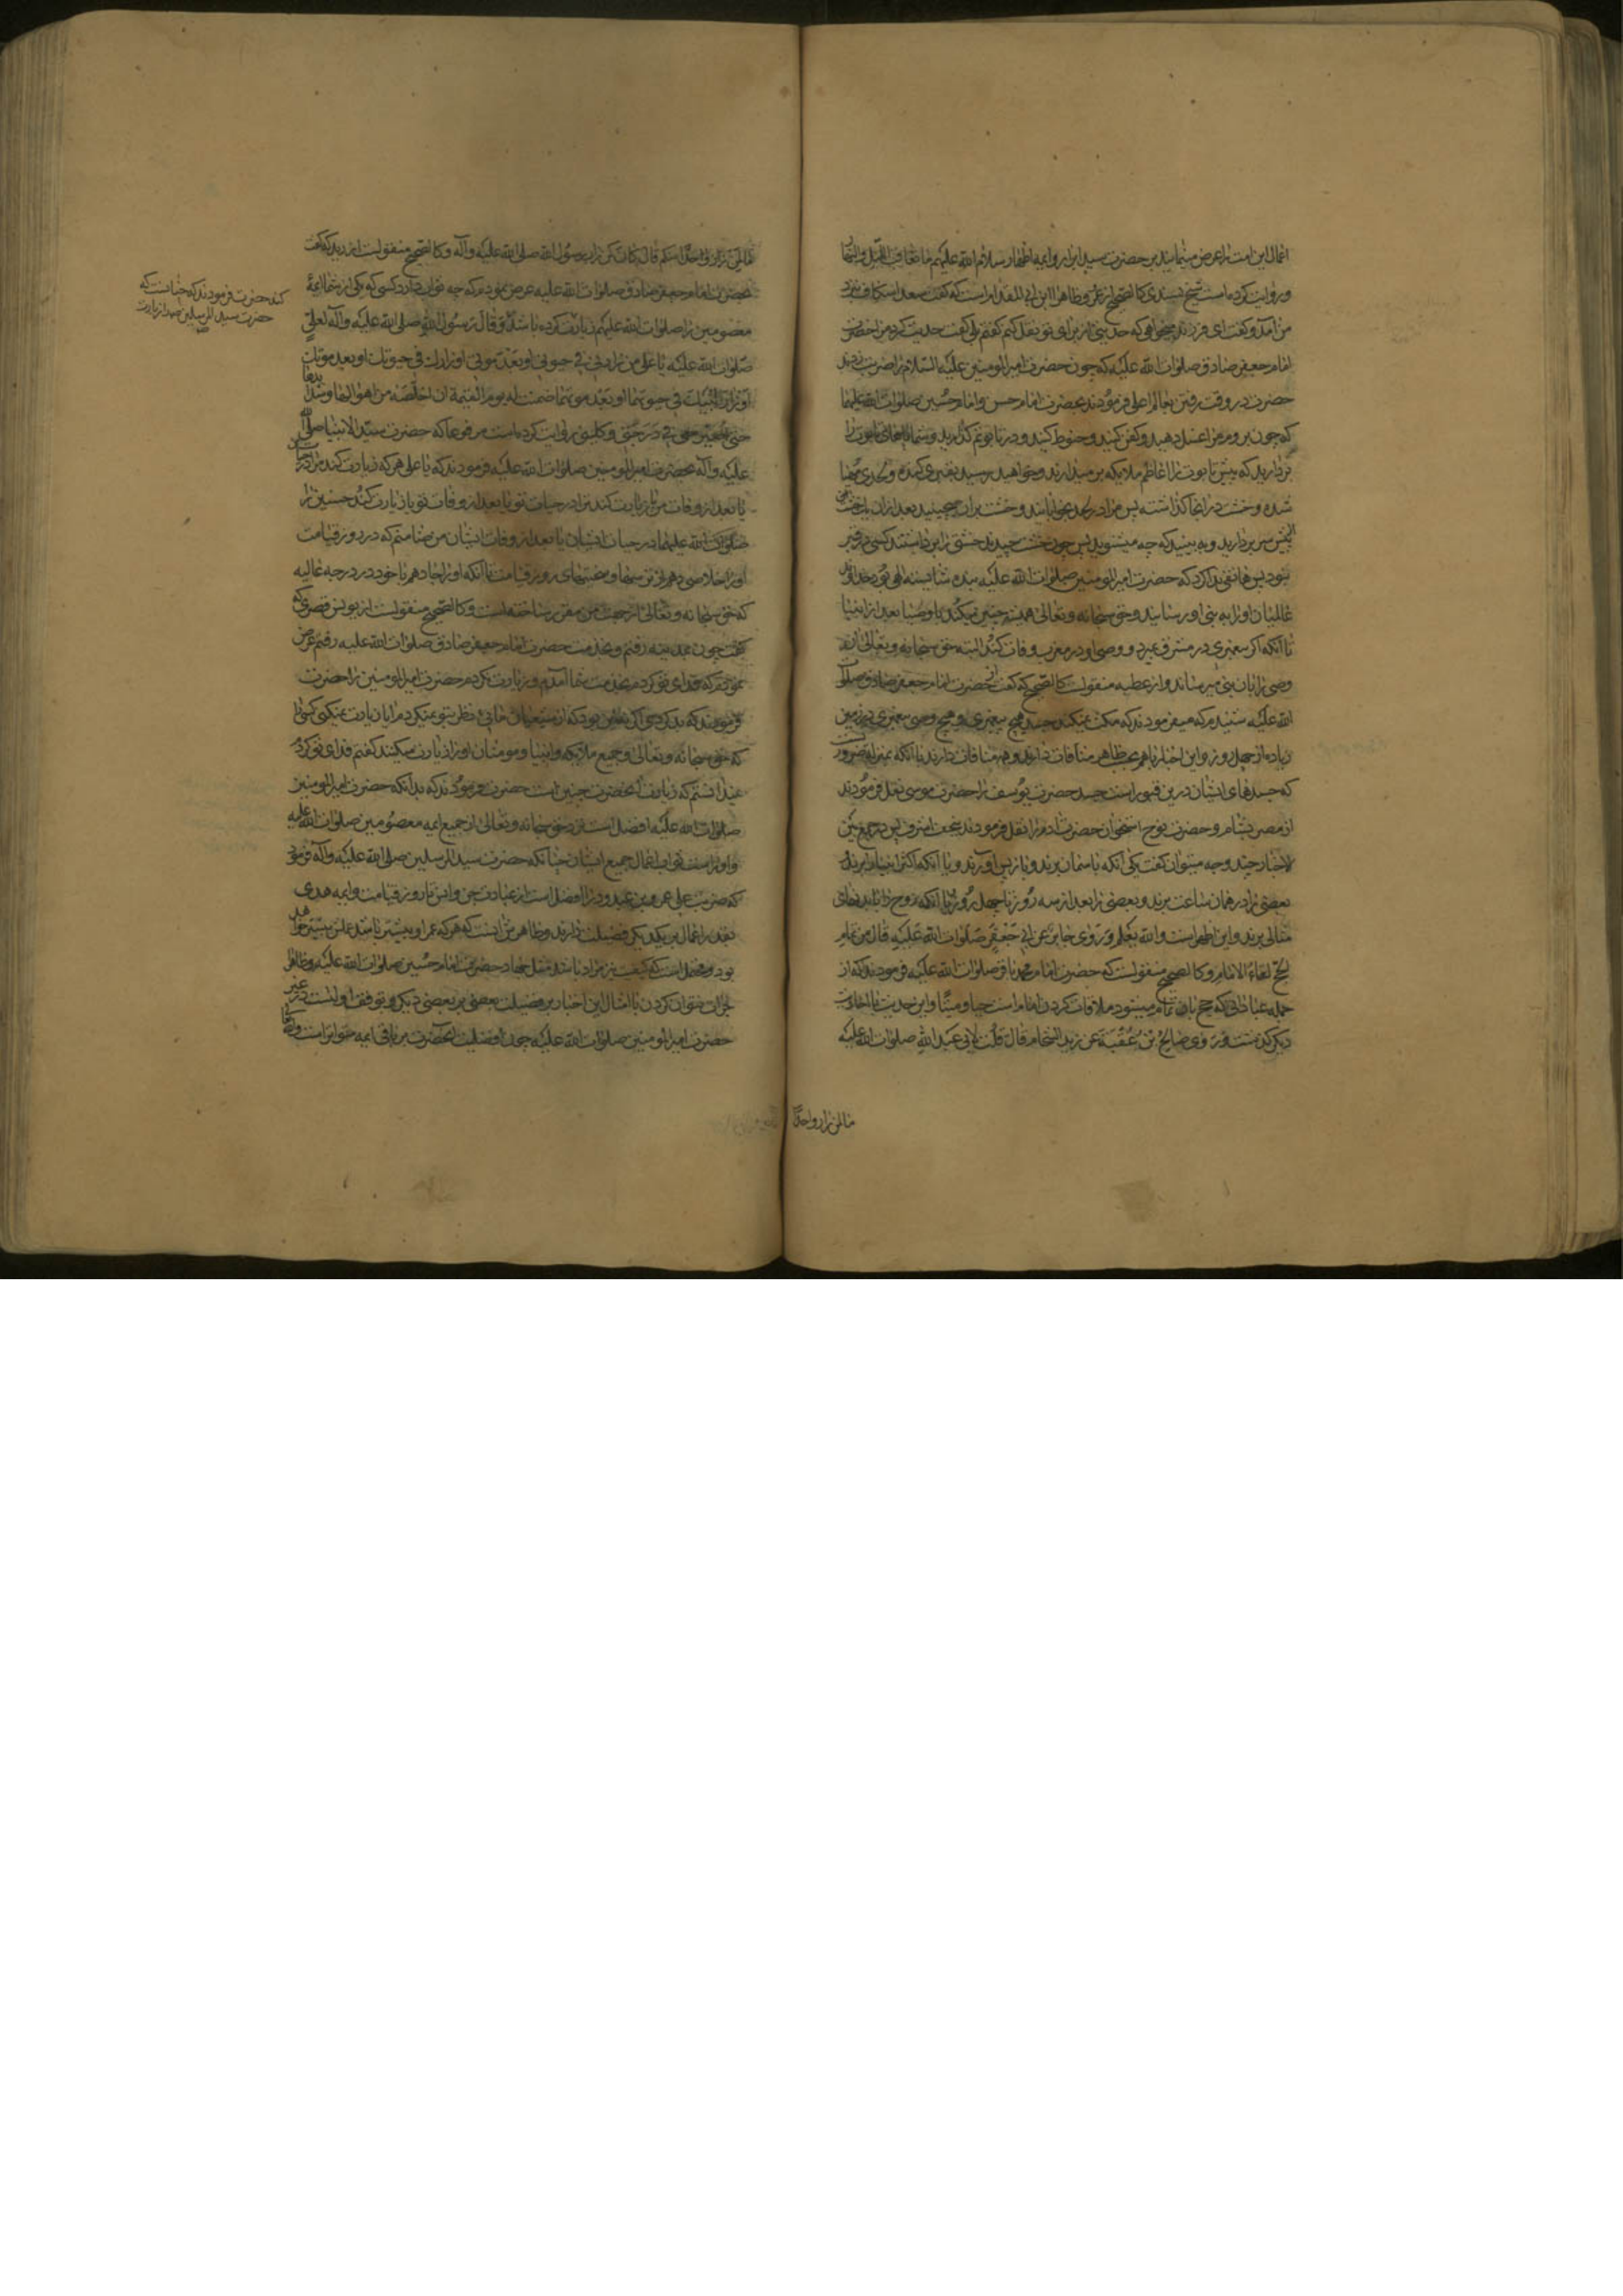 اعمال این امت را عرض مینمایند بر حضرت سید ابرار و ایمه اطهار سلام الله علیهم ما تعاقب اللیل والنهار
و روایت کرده است شیخ بسندی کالصحیح از و ظاهرا ابن ابی المقدام است که گفت سعد اسکاف نزد
من آمد و گفت ای فرزند میخواهی که حدیثی از برای تو نقل کنم گفتم بلی گفت حدیث کرد مرا حضرت
امام جعفر صادق صلوات الله علیه که چون حضرت امیر المومنین علیه السلام را ضربت زدند
حضرت در وقت رفتن بعالم اعلی فرمودند بحضرت امام حسن و امام حسین صلوات الله علیهما
که چون بروم مرا غسل دهید و کفن کنید و حنوط کنید و در تابوتم گذارید و شما پای تابوت را
بردارید که پیش تابوت را اعاظم ملایکه بر میدارند و خواهید رسید بقبری کنده و لحدی مهیا
شده و خشت در انجا گذاشته پس مرا در لحد بخوابانید و خشت بر ان بچینید بعد از ان یک خشت
پیش سر بردارید و به بینید که چه میشنوید پس چون خشت چیدند خشتی را برداشتند کسی در قبر
نبود پس هاتفی ندا کرد که حضرت امیر المومنین صلوات الله علیه بنده شایسته الهی بود خداوند
عالمیان او را به نبی او رسانید و حق سبحانه و تعالی همیشه چنین میکند باوصیا بعد از انبیا
تا آنکه اگر پیغمبری در مشرق بمیرد و وصی او در مغرب وفات کند البته حق سبحانه و تعالی ان
وصی را بان نبی میرساند و از عطیه منقولست کالصحیح که گفت از حضرت امام جعفر صادق صلوات
الله علیه شنیدم که میفرمودند که مکث نمیکند جسد هیچ پیغمبری و هیچ وصی پیغمبری در زمین
زیاده از چهل روز و این اخبار با هم بحسب ظاهر منافات دارند و هم منافات دارند با آنکه بمنزله ضروریست
که جسدهای ایشان درین قبور است جسد حضرت یوسف را حضرت موسی نقل فرمودند
از مصر بشام و حضرت نوح استخوان حضرت ادم را نقل فرمودند بنجف اشرف پس در جمع بین
الاخبار چند وجه میتوان گفت یکی آنکه باسمان برند و باز پس آورند و یا آنکه اکثر انبیا را برند
بعضی را در همان ساعت برند و بعضی را بعد از سه روز یا چهل روز یا آنکه روح را با بدنهای
مثالی برند و این اظهر است والله یعلم وروی جابر عن ابی جعفر صلوات الله علیه قال من تمام
الحج لقاء الامام و کالصحیح منقولست که حضرت امام محمد باقر صلوات الله علیه فرمودند که از
جمله عباداتی که حج بان تمام میشود ملاقات کردن امام است حیا و میتا و این حدیث با احادیث
دیگر گذشت وروی صالح بن عقبة عن زید الشحام قال قلت لابی عبد الله صلوات الله علیه
ما لمن زار واحدا
ما لمن زار واحدا منکم قال کان کمن زار رسول الله صلی الله علیه وآله و کالصحیح منقولست از زید که گفت
بحضرت امام جعفر صادق صلوات الله علیه عرض نمودم که چه ثواب دارد کسی که یکی از شما ایمه
معصومین را صلوات الله علیهم زیارت کرده باشد وقال رسول الله صلی الله علیه وآله لعلی
صلوات الله علیه یا علی من زارنی فی حیوتی او بعد موتی او زارک فی حیوتک او بعد موتک
او زار ابنیک فی حیوتهما او بعد موتهما ضمنت له یوم القیمة ان اخلصه من اهوالها وشدایدها
حتی اصیره معی فی درجتی و کلینی روایت کرده است مرفوعا که حضرت سید الانبیا صلی الله
علیه وآله بحضرت امیر المومنین صلوات الله علیه فرمودند که یا علی هر که زیارت کند مرا در حیات من
یا بعد از وفات من یا زیارت کند ترا در حیات تو یا بعد از وفات تو یا زیارت کند حسنین را
صلوات الله علیهما در حیات ایشان یا بعد از وفات ایشان من ضامنم که در روز قیامت
او را خلاصی دهم از ترسها و سختیهای روز قیامت تا آنکه او را جا دهم با خود در درجه عالیه
که حق سبحانه و تعالی از جهت من مقرر ساخته است و کالصحیح منقولست از یونس قصری که
گفت چون بمدینه رفتم و بخدمت حضرت امام جعفر صادق صلوات الله علیه رفتم عرض
نمودم که فدای تو کردم بخدمت شما آمدم و زیارت نکردم حضرت امیر المومنین را حضرت
فرمودند که بد کردی اگر نه این بود که از شیعیان مائی نظر بتو نمیکردم ایا زیارت نمیکنی کسی را
که حق سبحانه و تعالی و جمیع ملایکه و انبیا و مومنان او را زیارت میکنند گفتم فدای تو گردم
نمیدانستم که زیارت انحضرت چنین است حضرت فرمودند که بدانکه حضرت امیر المومنین
صلوات الله علیه افضل است نزد حق سبحانه و تعالی از جمیع ایمه معصومین صلوات الله علیهم
و او راست ثواب اعمال جمیع ایشان چنانکه حضرت سید المرسلین صلی الله علیه وآله فرمود
که ضربت علی عمرو بن عبدود را افضل است از عبادت جن و انس تا روز قیامت و ایمه هدی
بقدر اعمال بر یکدیگر فضیلت دارند و ظاهرش اینست که هر که عمر او بیشتر باشد عملش بیشتر خواهد
بود و محتمل است که کیفیت نیز مراد باشد مثل جهاد حضرت امام حسین صلوات الله علیه و ظاهرا
جرات نتوان کردن با امثال این اخبار بر فضیلت بعضی بر بعضی دیگر و توقف اولیست در غیر
حضرت امیر المومنین صلوات الله علیه چون افضلیت انحضرت بر باقی ایمه متواتر است
کند حضرت فرمودند که چنانست که
حضرت سید المرسلین را زیارت